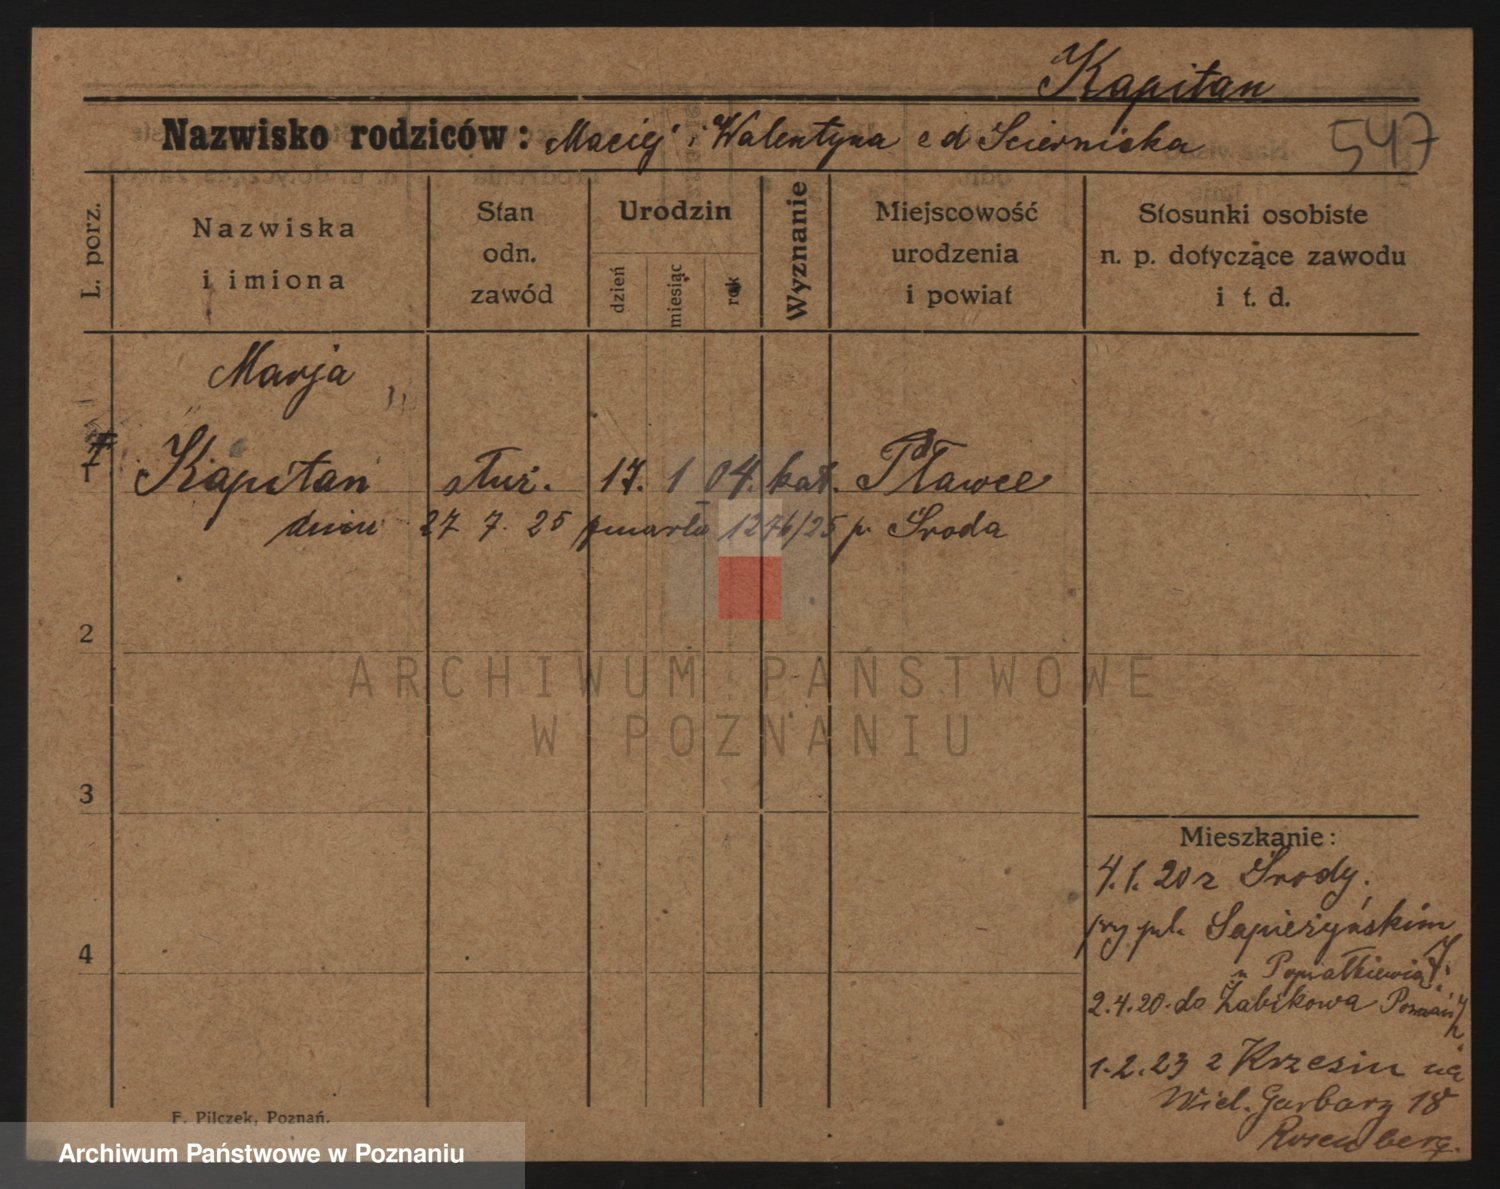 Kapitan
Nazwisko rodziców: Maciej i Walentyna e d Scierniska
547
L. porz.
Nazwiska
i imiona
Stan
odn.
zawód
Urodzin
dzień
miesiąc
rok
Wyznanie
Miejscowość
urodzenia
i powiat
Stosunki osobiste
n. p. dotyczące zawodu
i t. d.
Marja
1 Kapitan służ. 17. 1 04. kat. Pławce
dniu 27 7. 25 zmarła 1276/25 p. Sroda
2
3
4
Mieszkanie:
4.1.20 z Srody.
przy pl. Sapieżyńskim 7.
2.4.20. do Żabikowa
1.2.23 z Krzesin na
Wiel. Garbary 18
Rosenberg.
F. Pilczek, Poznań.
ARCHIWUM PAŃSTWOWE
W POZNANIU
Archiwum Państwowe w Poznaniu